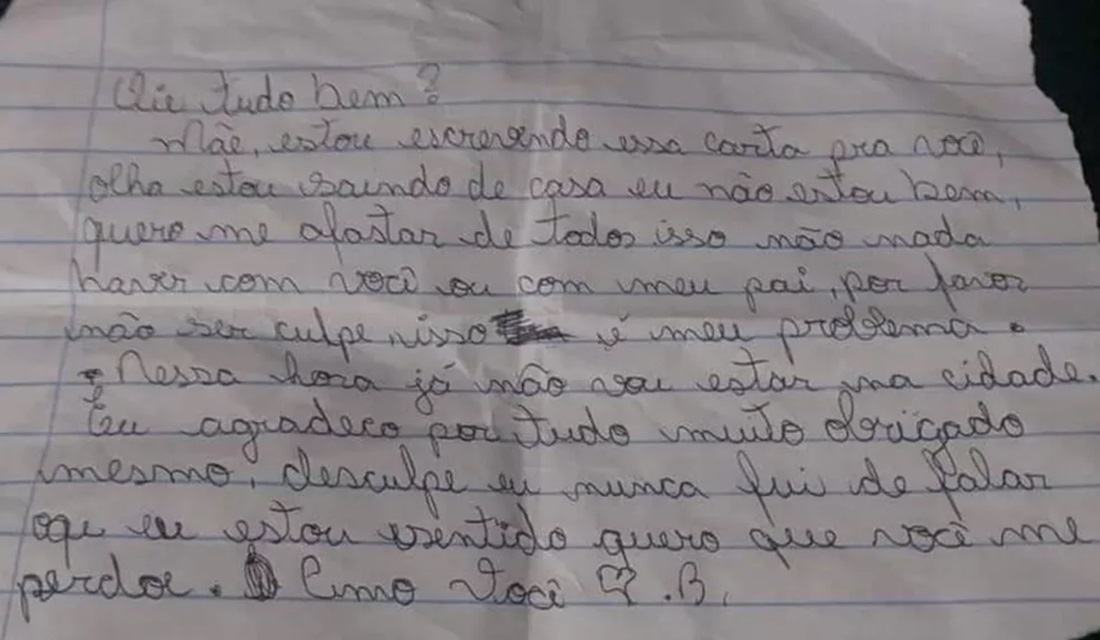 Oie tudo bem?
Mãe, estou escrevendo essa carta pra você,
olha estou saindo de casa eu não estou bem,
quero me afastar de todos isso não nada
haver com você ou com meu pai, por favor
não ser culpe nisso é meu problema.
Nessa hora já não vou estar na cidade.
Eu agradeco por tudo muito obrigado
mesmo, desculpe eu nunca fui de falar
oque eu estou sentido quero que você me
perdoe. Amo você ♡ .B.